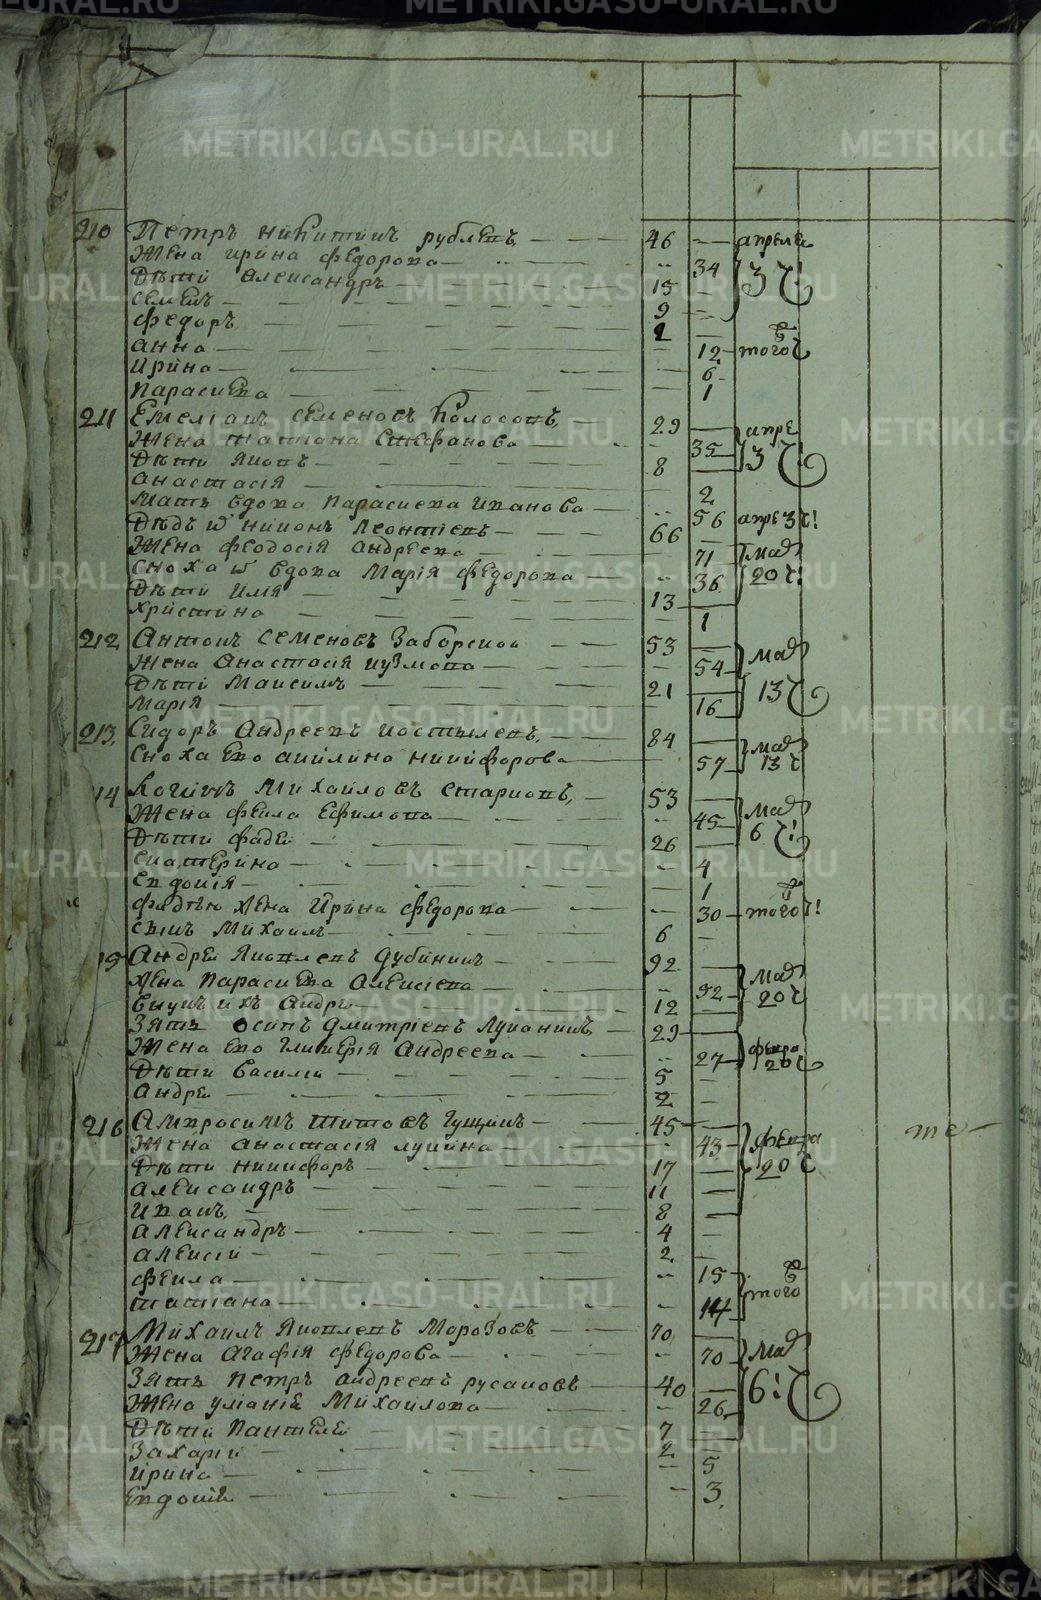 210 Петръ никитинъ рублевъ 46 апреля
Жена ирина федорова 34 13 Ч!
Дѣти Александръ 15
семенъ 9
федоръ 1
анна 12 того Ч
ирина 6
парасковa 1
211 Емелианъ семеновъ Колосовъ 29 апре
Жена татиана Стефанова 35 13 Ч!
Дѣти Яковъ 8
анастасія 2
Мать вдова Парасковa Иванова 56 апре 3 Ч!
Дѣдъ никонъ Леонтіевъ 66
Жена феодосія андреева 71 мая
сноха вдова Марія федорова 36 20 Ч!
Дѣти Илия 13
христина 1
212 Антонъ семеновъ Заборской 53 мая
жена анастасія кузмова 54
Дѣти Максимъ 21 13 Ч
Марія 16
213 Сидоръ Андреевъ костылевъ 84 мая
сноха ево акилина никифорова 57 13 Ч
14 Михаиловъ стариковъ 53
Жена фекла Ефимова 45 мая
Дѣти фадеи 26 6 Ч!
екатерина 4
евдокія 1
фадѣю жена Ирина федорова 30 того Ч!
сынъ Михаилъ 6
15 Андреи Яковлевъ дубининъ 92
жена парасковa алексіева 92 мая
внукъ ихъ андреи 12 20 Ч
Зять осипъ дмитріевъ Луканинъ 29
Жена ево гликерія андреева 27 февра 20 Ч
Дѣти василии 5
андреи 2
216 Амвросимъ титовъ гущинъ 45
Жена анастасія лукина 43 февра
Дѣти никифоръ 17 20 Ч
александръ 11
иванъ 8
александръ 4
алексіи 2
фекла 15
татиана 14 того
217 Михаилъ Яковлевъ Морозовъ 70
Жена агафія федорова 70 мая
Зять петръ андреевъ русановъ 40 6! Ч
Жена уланіѣ Михаилова 26
Дѣти пантелеи 7
Захарии 2
ирина 5
евдокіѣ 3
METRIKI.GASO-URAL.RU